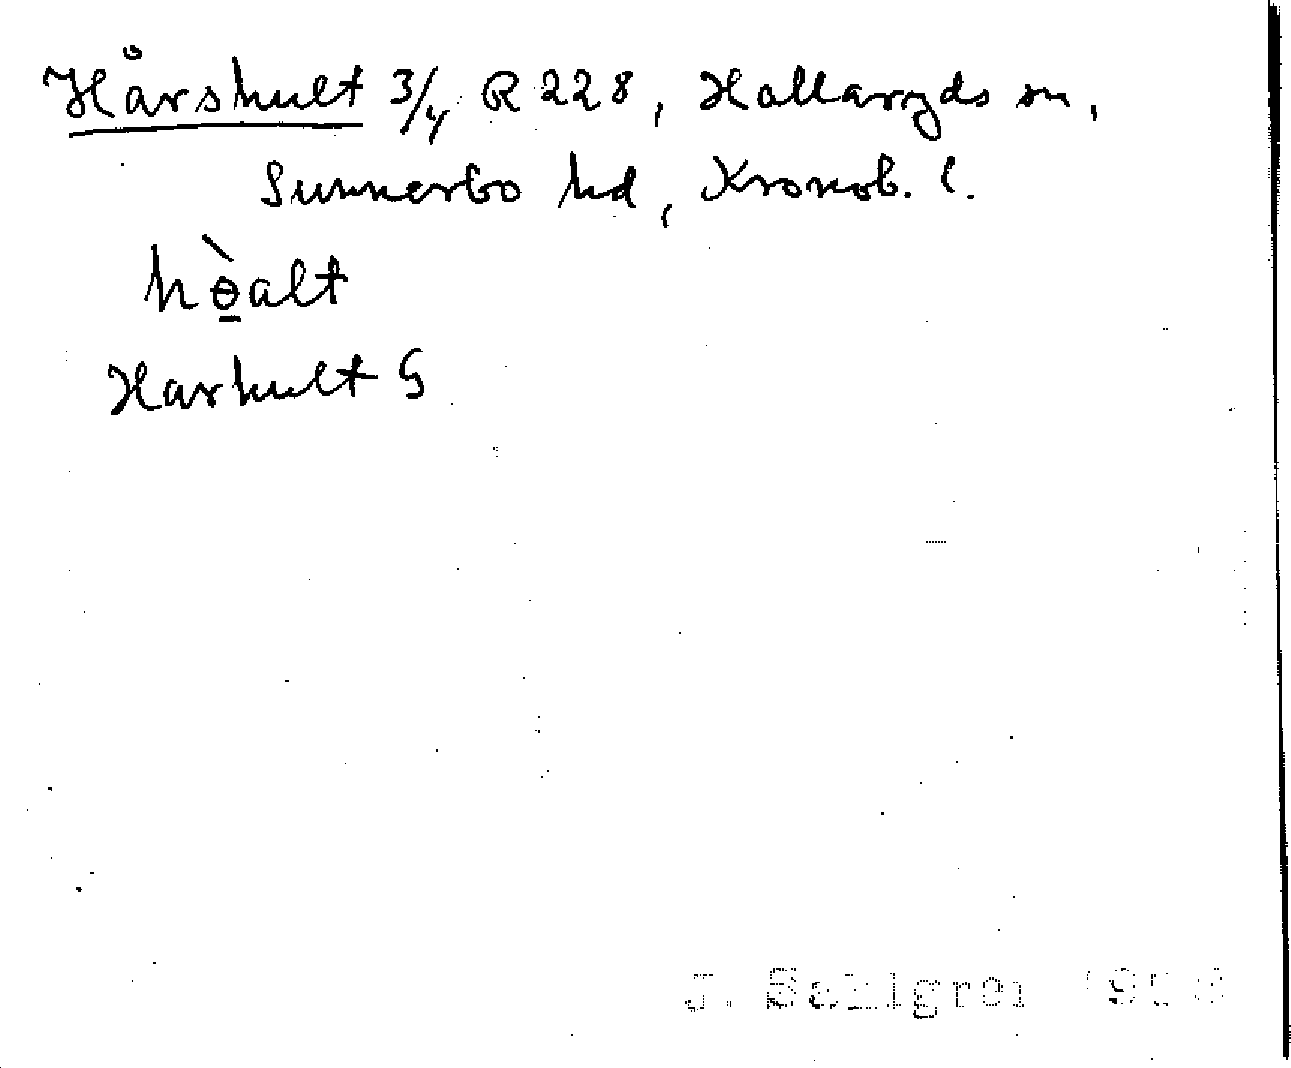 Hårshult 3/4 R 228, Hallaryds sn,
Sunnerbo hd, Kronob. l.
hɵ̠̀alt
Harhult G
J. Sahlgren